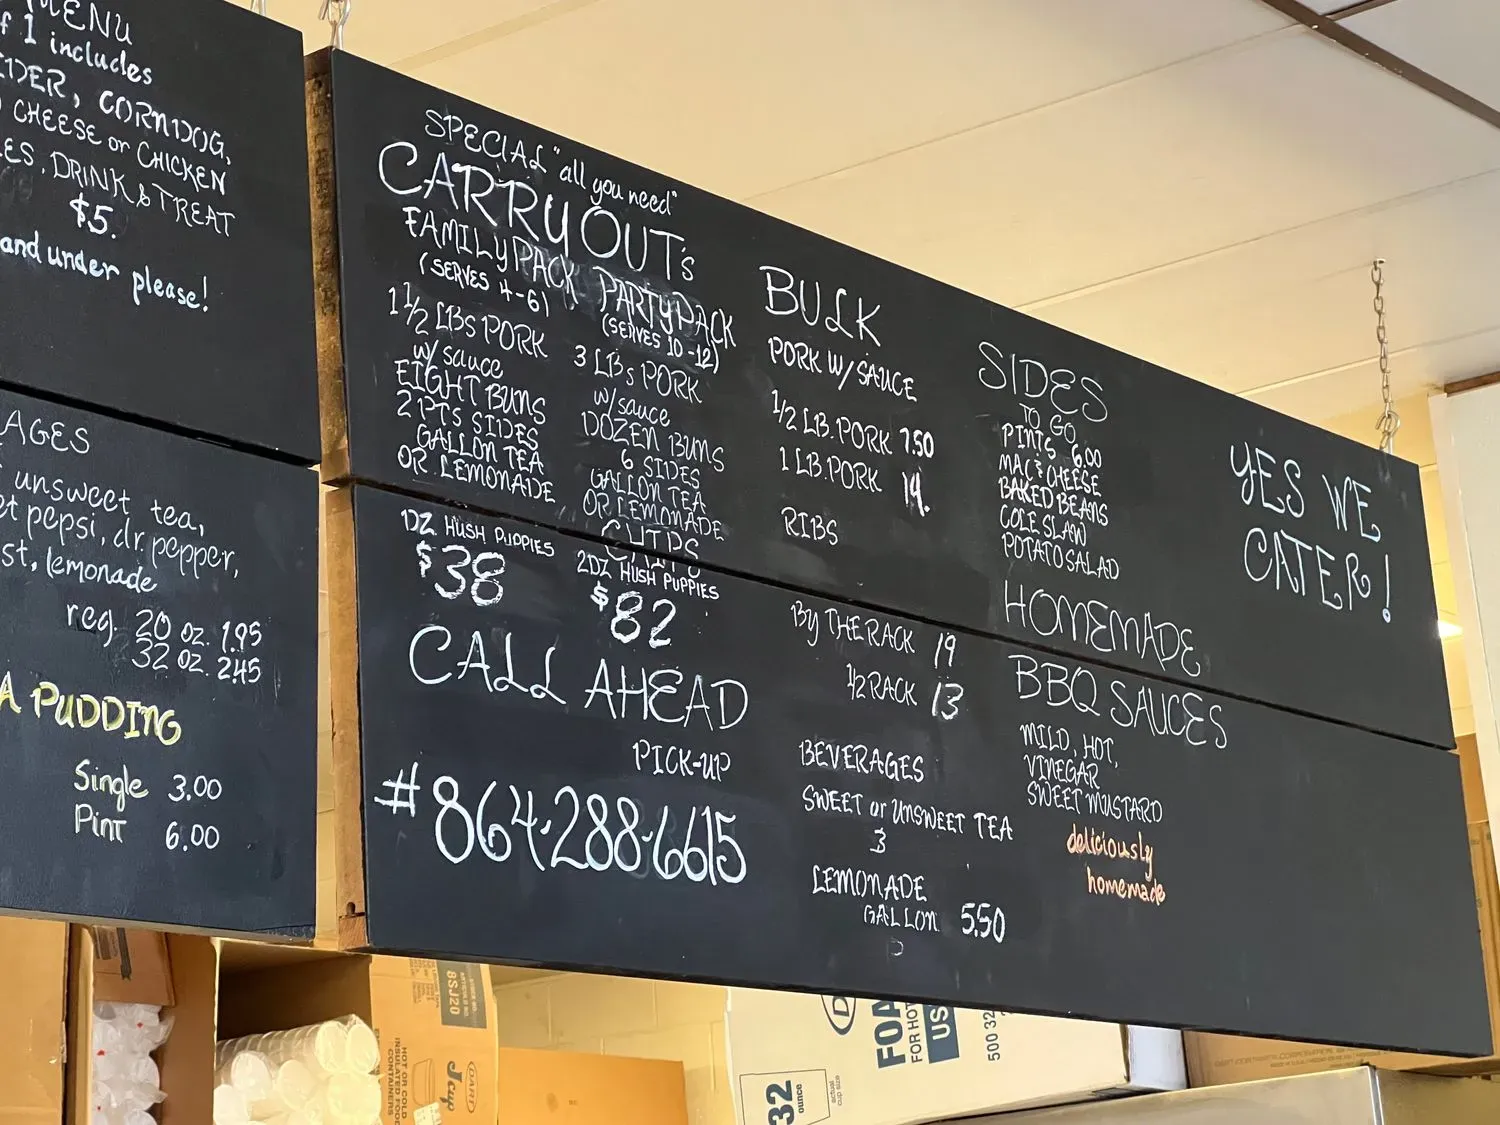 MENU
f 1 includes
IDER, CORNDOG,
CHEESE or CHICKEN
ES, DRINK & TREAT
$5.
and under please!
AGES
unsweet tea,
et pepsi, dr. pepper,
st, lemonade
reg. 20 oz. 1.95
32 oz. 2.45
A PUDDING
Single 3.00
Pint 6.00
SPECIAL "all you need"
CARRY OUT's
FAMILY PACK
(SERVES 4-6)
1 1/2 LBS PORK
w/ sauce
EIGHT BUNS
2 PTS SIDES
GALLON TEA
OR LEMONADE
1DZ HUSH PUPPIES
$38
PARTY PACK
(SERVES 10-12)
3 LBs PORK
w/sauce
DOZEN BUNS
6 SIDES
GALLON TEA
OR LEMONADE
CHIPS
2DZ HUSH PUPPIES
$82
CALL AHEAD
PICK-UP
#864-288-6615
BULK
PORK W/ SAUCE
1/2 LB. PORK 7.50
1 LB. PORK 14.
RIBS
By THE RACK 19
1/2 RACK 13
BEVERAGES
SWEET or UNSWEET TEA
3
LEMONADE
GALLON 5.50
SIDES
TO GO
PINTS 6.00
MAC & CHEESE
BAKED BEANS
COLE SLAW
POTATO SALAD
HOMEMADE
BBQ SAUCES
MILD, HOT,
VINEGAR
SWEET MUSTARD
deliciously
homemade
YES WE
CATER!
8SJ20
HOT OR COLD
INSULATED FOOD
CONTAINERS
J cup
DART
32
ounce
actual
cup size
D
FOA
FOR HOT
US
500 32